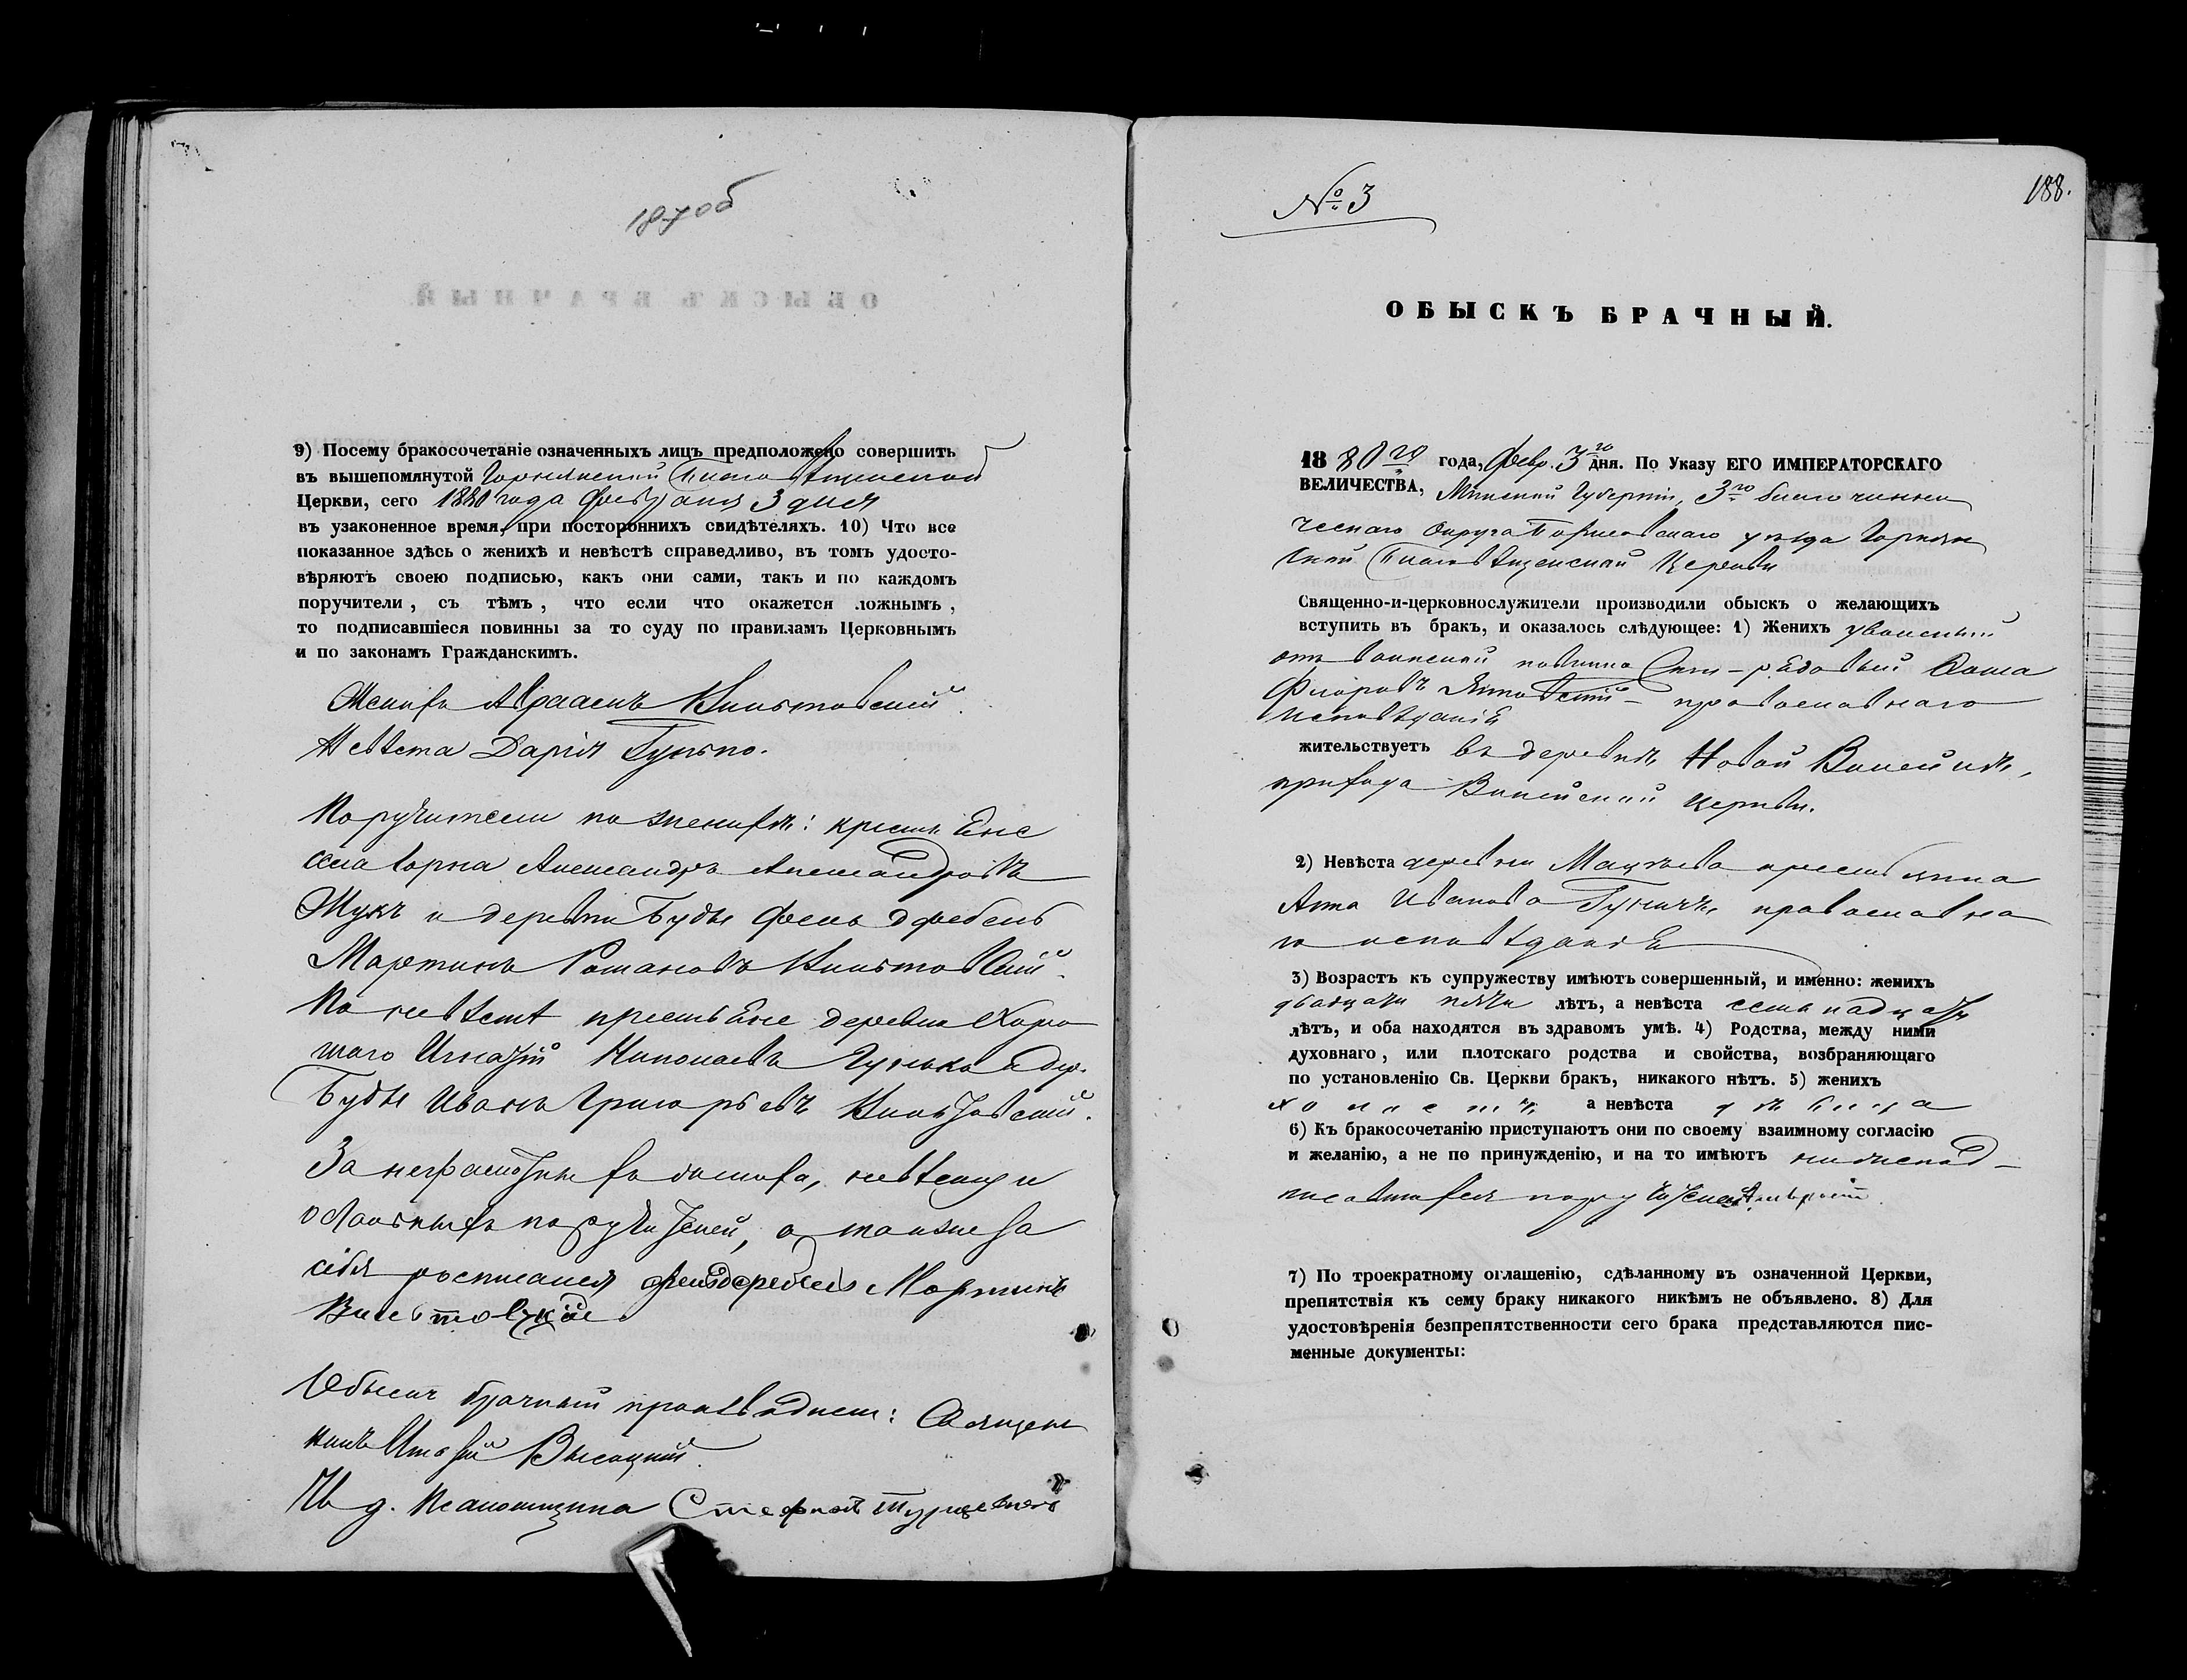 187 об
9) Посему бракосочетаніе означенныхъ лицъ предположено совершить
въ вышепомянутой Горкинской Благовѣщенской
Церкви, сего 1880 года февраля 3 дня
въ узаконенное время, при постороннихъ свидѣтеляхъ. 10) Что все
показанное здѣсь о женихѣ и невѣстѣ справедливо, въ томъ удосто-
вѣряютъ своею подписью, какъ они сами, такъ и по каждомъ
поручители, съ тѣмъ, что если что окажется ложнымъ,
то подписавшіеся повинны за то суду по правиламъ Церковнымъ
и по законамъ Гражданскимъ.
Женихъ Авраамъ
Невѣста Дарія Гунько.
Поручители по женихѣ: крестьяне
села Горка Александръ Александровъ
Жукъ и деревни Буды фельдфебель
Мартинъ Романовъ
По невѣстѣ крестьяне деревни Хоро
шаго Игнатій Николаевъ Гунько и дер.
Буды Иванъ Григорьевъ
За неграмотныхъ жениха, невѣсту и
остальныхъ поручителей, а также за
себя росписался фельдфебель Мартинъ
Обыскъ брачный производили: Священ
никъ Высоцкій
И д. Псаломщика Стефанъ
№ 3
188.
ОБЫСКЪ БРАЧНЫЙ.
1880го года, Февр. 3го дня. По Указу ЕГО ИМПЕРАТОРСКАГО
ВЕЛИЧЕСТВА, Минской Губерніи, 3го благочинни
ческаго Округа Борисовскаго уѣзда Горкин
ской Благовѣщенской Церкви
Священно-и-церковнослужители производили обыскъ о желающихъ
вступить въ бракъ, и оказалось слѣдующее: 1) Женихъ уволенный
отъ воинской повинности рядовый Ѳома
Флоровъ православнаго
исповѣданія
жительствуетъ въ деревнѣ Новой Вилейкѣ,
прихода Вилейской церкви.
2) Невѣста деревни крестьянка
Анна Иванова православна
го исповѣданія
3) Возрастъ къ супружеству имѣютъ совершенный, и именно: женихъ
двадцати пяти лѣтъ, а невѣста семьнадцати
лѣтъ, и оба находятся въ здравомъ умѣ. 4) Родства, между ними
духовнаго, или плотскаго родства и свойства, возбраняющаго
по установленію Св. Церкви бракъ, никакого нѣтъ. 5) женихъ
холостъ, а невѣста дѣвица
6) Къ бракосочетанію приступаютъ они по своему взаимному согласію
и желанію, а не по принужденію, и на то имѣютъ нижепод-
писавшихся поручителей
7) По троекратному оглашенію, сдѣланному въ означенной Церкви,
препятствія къ сему браку никакого никѣмъ не объявлено. 8) Для
удостовѣренія безпрепятственности сего брака представляются пис-
менные документы: